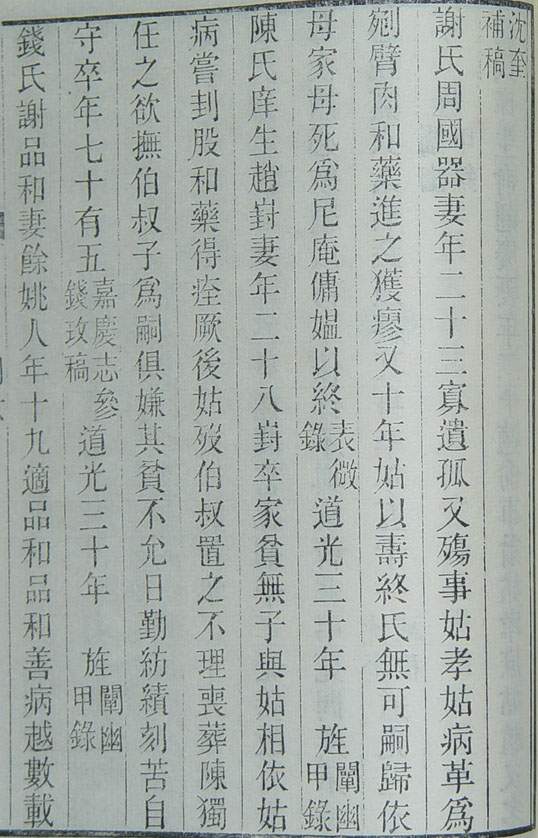 沈奎補稿
謝氏周國器妻年二十三寡遺孤又殤事姑孝姑病革爲
剜臂肉和藥進之獲瘳又十年姑以壽終氏無可嗣歸依
母家母死爲尼庵傭媼以終表微錄道光三十年 旌闡幽甲錄
陳氏庠生趙嶎妻年二十八嶎卒家貧無子與姑相依姑
病嘗刲股和藥得痊厥後姑歿伯叔置之不理喪葬陳獨
任之欲撫伯叔子爲嗣俱嫌其貧不允日勤紡績刻苦自
守卒年七十有五嘉慶志參錢玫稿道光三十年 旌闡幽甲錄
錢氏謝品和妻餘姚人年十九適品和品和善病越數載